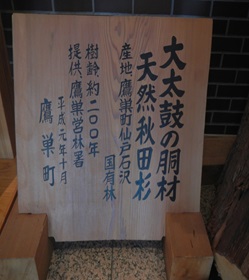 大太鼓の胴材
天然秋田杉
産地、鷹巣町仙戸石沢
国有林
樹齢、約二〇〇年
提供、鷹巣営林署
平成元年十月
鷹巣町